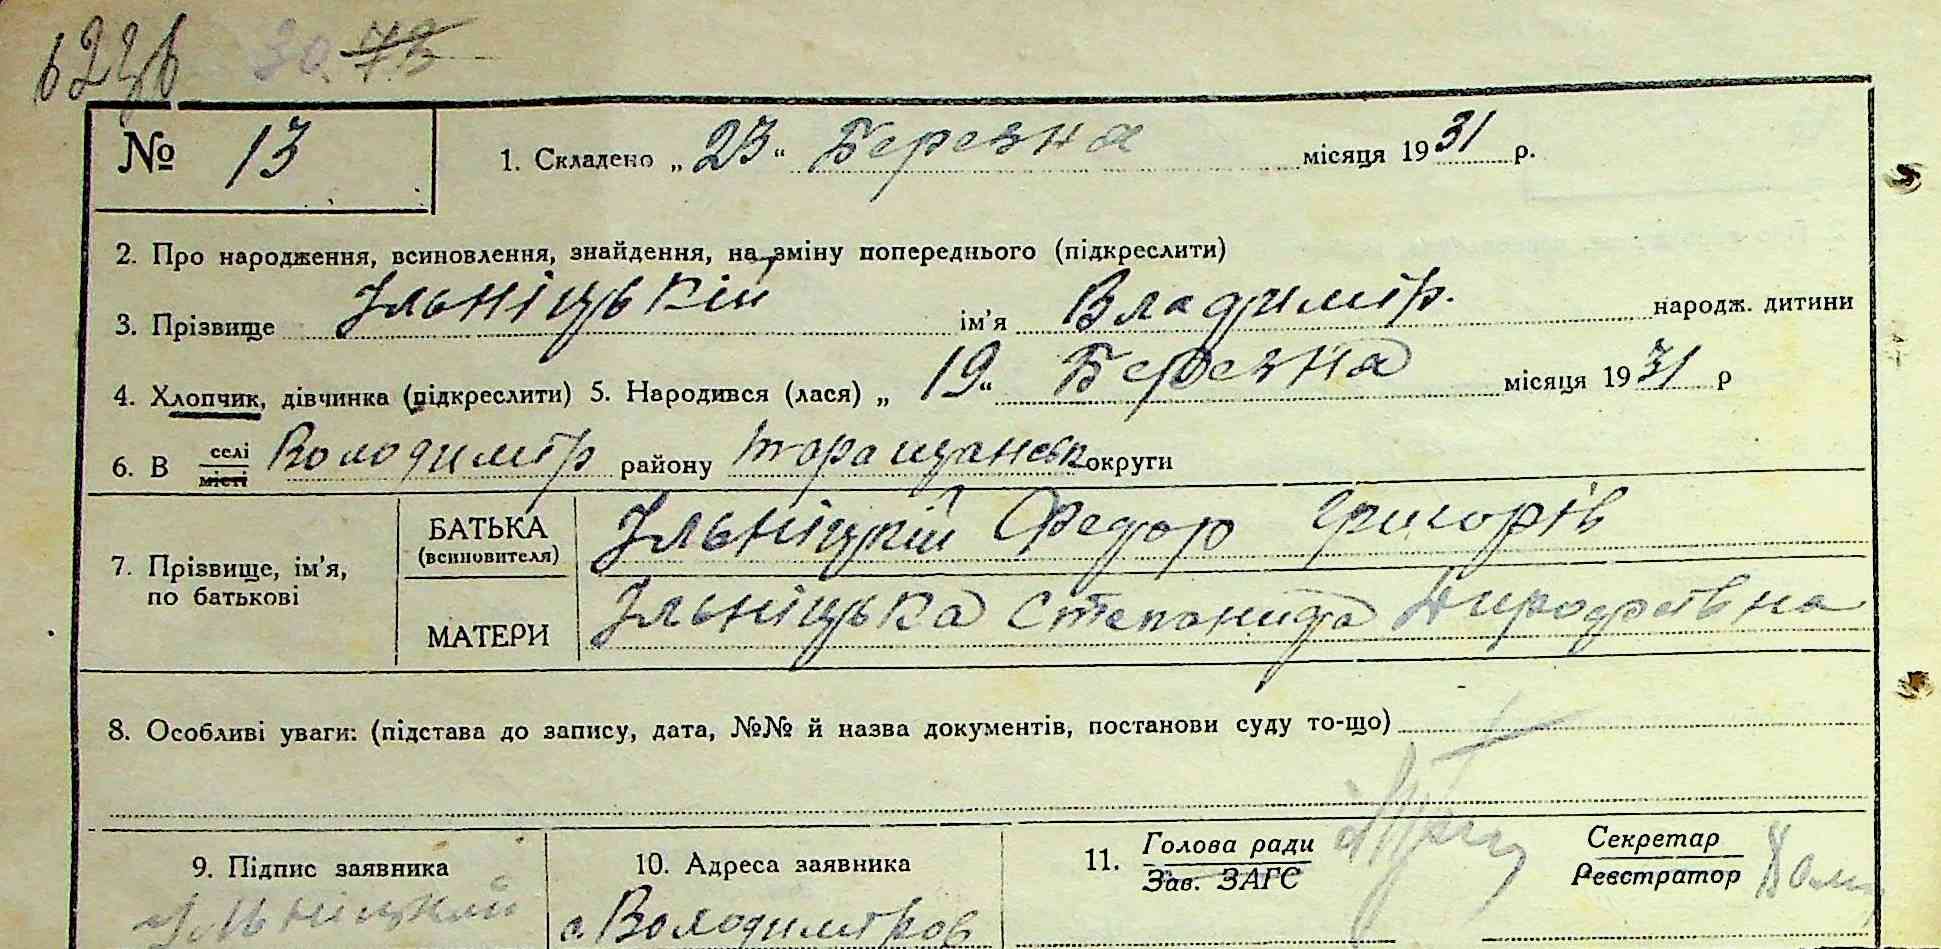 623б 30. 73
№ 13
1. Складено „ 23 “ Березня місяця 1931 р.
2. Про народження, всиновлення, знайдення, на зміну попереднього (підкреслити)
3. Прізвище Ільніцький ім’я Владимір. народж. дитини
4. Хлопчик, дівчинка (підкреслити) 5. Народився (лася) „ 19 “ Березня місяця 1931 р
6. В селі місті Володимір району Таращанськ округи
7. Прізвище, ім’я, по батькові
БАТЬКА (всиновителя) Ільніцкій Федор Григорів
МАТЕРИ Ільніцька Степанида Дорофеівна
8. Особливі уваги: (підстава до запису, дата, №№ й назва документів, постанови суду то-що)
9. Підпис заявника
Ільніцкий
10. Адреса заявника
с. Володимиров
11. Голова ради
Зав. ЗАГС
Секретар
Реєстратор